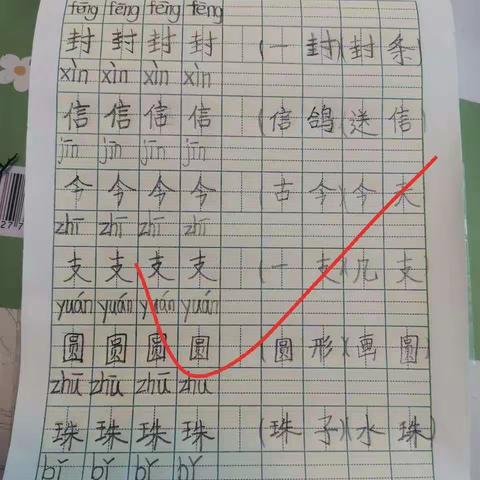 fēng fēng fēng fēng
封 封 封 封 (一 封)(封 条)
xìn xìn xìn xìn
信 信 信 信 (信 鸽)(送 信)
jīn jīn jīn jīn
今 今 今 今 (古 今)(今 末)
zhī zhī zhī zhī
支 支 支 支 (十 支)(几 支)
yuán yuán yuán yuán
圆 圆 圆 圆 (圆 形)(画 圆)
zhū zhū zhū zhū
珠 珠 珠 珠 (珠 子)(水 珠)
bǐ bǐ bǐ bǐ